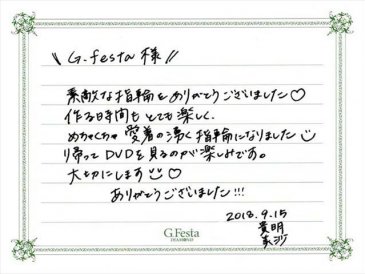 \\ G.festa 様 //
素敵な指輪をありがとうございました♡
作る時間もとても楽しく、
めちゃくちゃ愛着の湧く指輪になりました
帰ってDVDを見るのが楽しみです。
大切にします♡
ありがとうございました!!!
2018.9.15
貴明
G.Festa